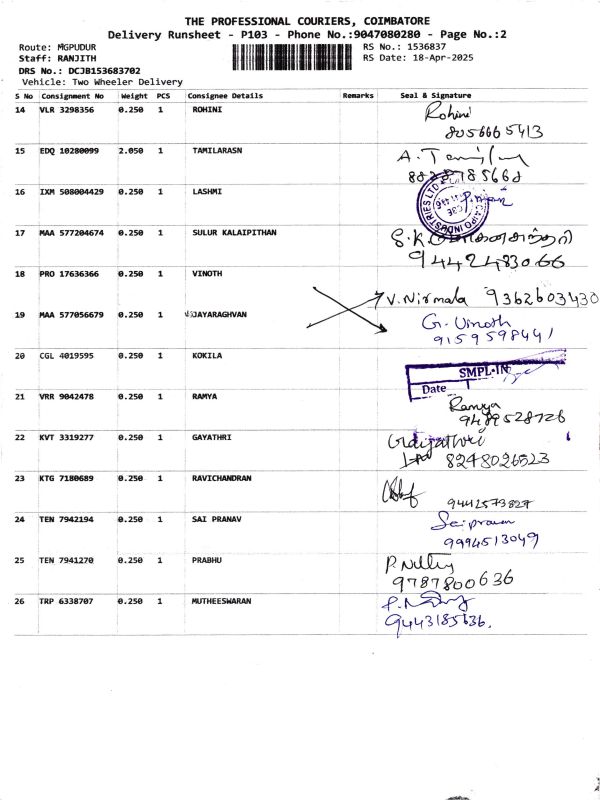 THE PROFESSIONAL COURIERS, COIMBATORE
Delivery Runsheet - P103 - Phone No.:9047080280 - Page No.:2
Route: MGPUDUR
RS No.: 1536837
Staff: RANJITH
RS Date: 18-Apr-2025
DRS No.: DCJB153683702
Vehicle: Two Wheeler Delivery
S No Consignment No Weight PCS Consignee Details Remarks Seal & Signature
14 VLR 3298356 0.250 1 ROHINI Rohini
8056665413
15 EDQ 10280099 2.050 1 TAMILARASN
16 IXM 508004429 0.250 1 LASHMI
17 MAA 577204674 0.250 1 SULUR KALAIPITHAN
9442483066
18 PRO 17636366 0.250 1 VINOTH
V. Nirmala 9362603430
19 MAA 577056679 0.250 1 JAYARAGHVAN G. Vinoth
9159598441
20 CGL 4019595 0.250 1 KOKILA
SMPL-IN
Date
21 VRR 9042478 0.250 1 RAMYA Ramya
9489528726
22 KVT 3319277 0.250 1 GAYATHRI Gayathri
8248026523
23 KTG 7180689 0.250 1 RAVICHANDRAN
9442573827
24 TEN 7942194 0.250 1 SAI PRANAV Saipranav
9994513049
25 TEN 7941270 0.250 1 PRABHU
9787800636
26 TRP 6338707 0.250 1 MUTHEESWARAN
9443185636.